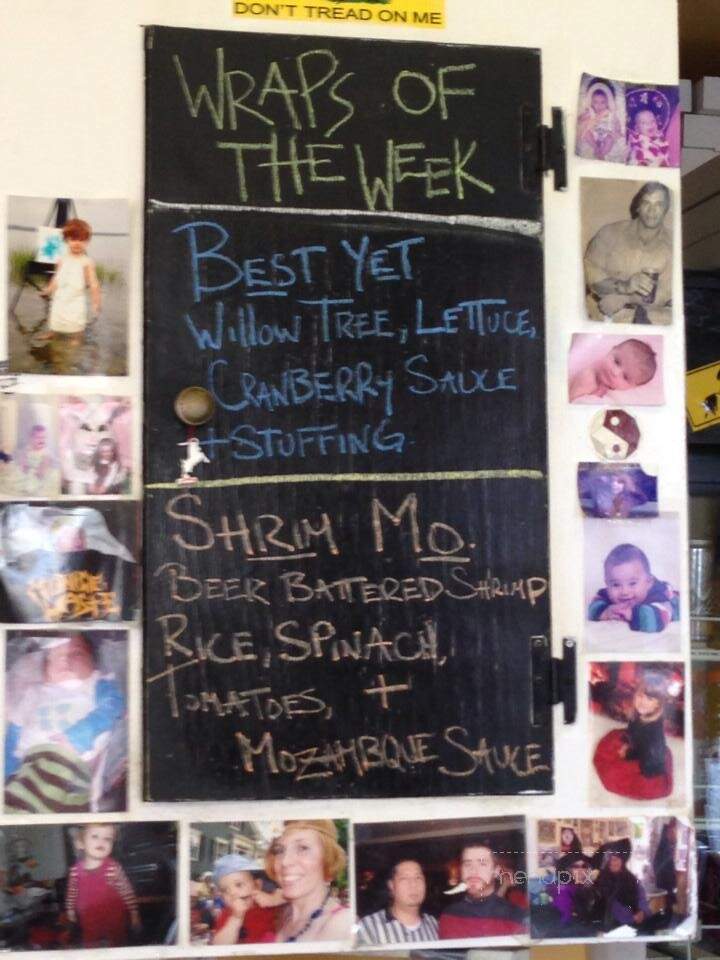 DON'T TREAD ON ME
WRAPS OF
THE WEEK
BEST YET
WILLOW TREE, LETTUCE,
CRANBERRY SAUCE
+ STUFFING
SHRIM MO.
BEER BATTERED SHRIMP
RICE, SPINACH,
TOMATOES, +
MOZAMBQUE SAUCE